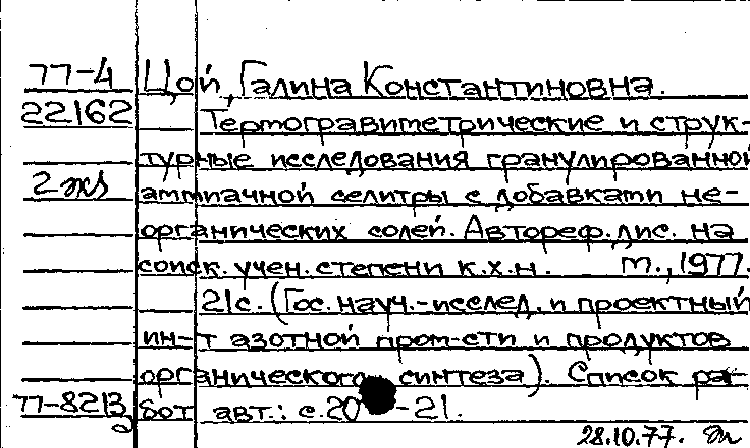 77-4 Цой, Галина Константиновна.
22162 Термогравиметрические и струк-
турные исследования гранулированной
2 экз аммиачной селитры с добавками не-
органических солей. Автореф. дис. на
соиск. учен. степени к.х.н. М., 1977.
21с. (Гос. науч.-исслед. и проектный
ин-т азотной пром-сти и продуктов
органического синтеза). Список ра-
77-8213 бот авт.: с.20-21.
28.10.77.